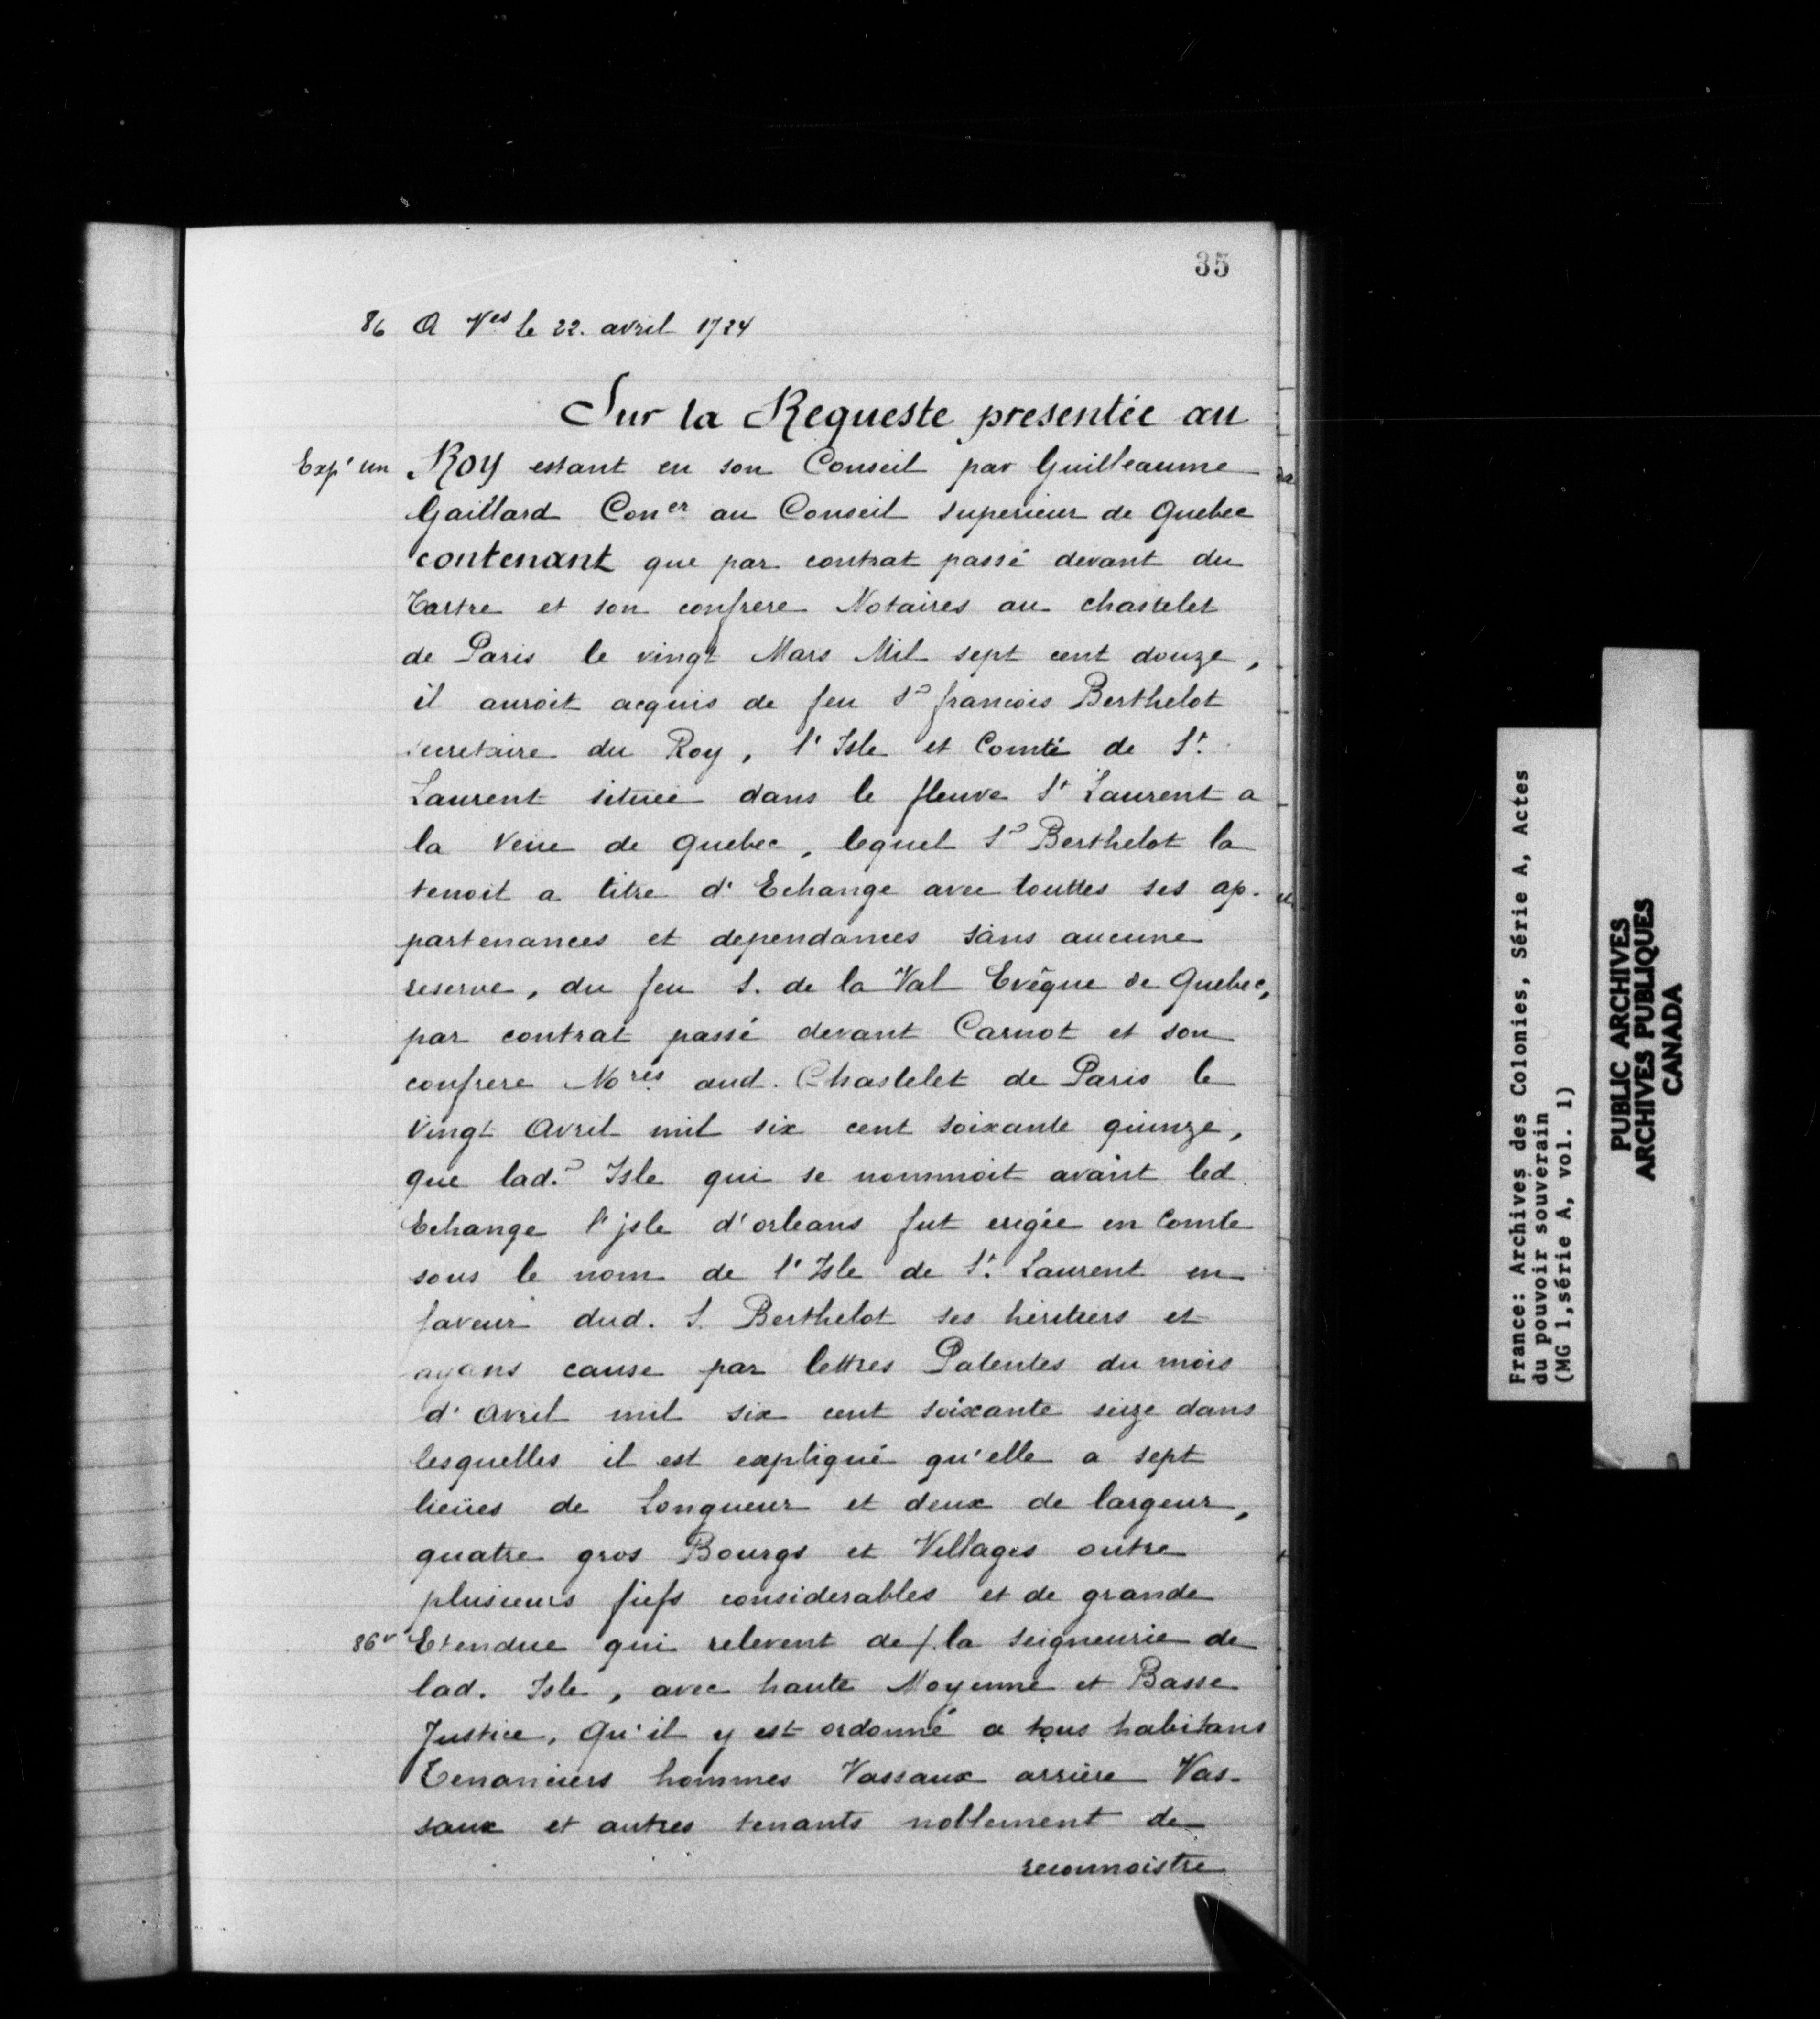 35
86 A V.es le 22. avril 1724
Sur la Requeste presentée au
Exp.é un Roy estant en son Conseil par Guilleaume
Gaillard Con.er au Conseil superieur de Quebec
contenant que par contrat passé devant du
Tartre et son confrere Notaires au chastelet
de Paris le vingt Mars Mil sept cent douze,
il auroit acquis de feu S.r francois Berthelot
secretaire du Roy, l'Isle et Comté de S.t
Laurent située dans le fleuve S.t Laurent a
la veüe de Quebec, lequel S.r Berthelot la
tenoit a titre d'Echange avec touttes ses ap-
partenances et dependances sans aucune
reserve, du feu S. de la Val Evêque de Quebec,
par contrat passé devant Carnot et son
confrere No.res aud. Chastelet de Paris le
vingt Avril mil six cent soixante quinze,
que lad.e Isle qui se nommoit avant led.
Echange l'jsle d'orleans fut erigée en Comté
sous le nom de l'Isle de S.t Laurent en
faveur dud. S. Berthelot ses heritiers et
ayans cause par lettres Patentes du mois
d'Avril mil six cent soixante seize dans
lesquelles il est expliqué qu'elle a sept
lieües de Longueur et deux de largeur,
quatre gros Bourgs et Villages outre
plusieurs fiefs considerables et de grande
86v Etendue qui relevent de /. la seigneurie de
lad. Isle, avec haute Moyenne et Basse
Justice, Qu'il y est ordonné a tous habitans
Tenanciers hommes Vassaux arriere Vas-
saux et autres tenants noblement de
reconnoistre
France: Archives des Colonies, Série A, Actes
du pouvoir souverain
(MG 1,série A, vol. 1)
PUBLIC ARCHIVES
ARCHIVES PUBLIQUES
CANADA